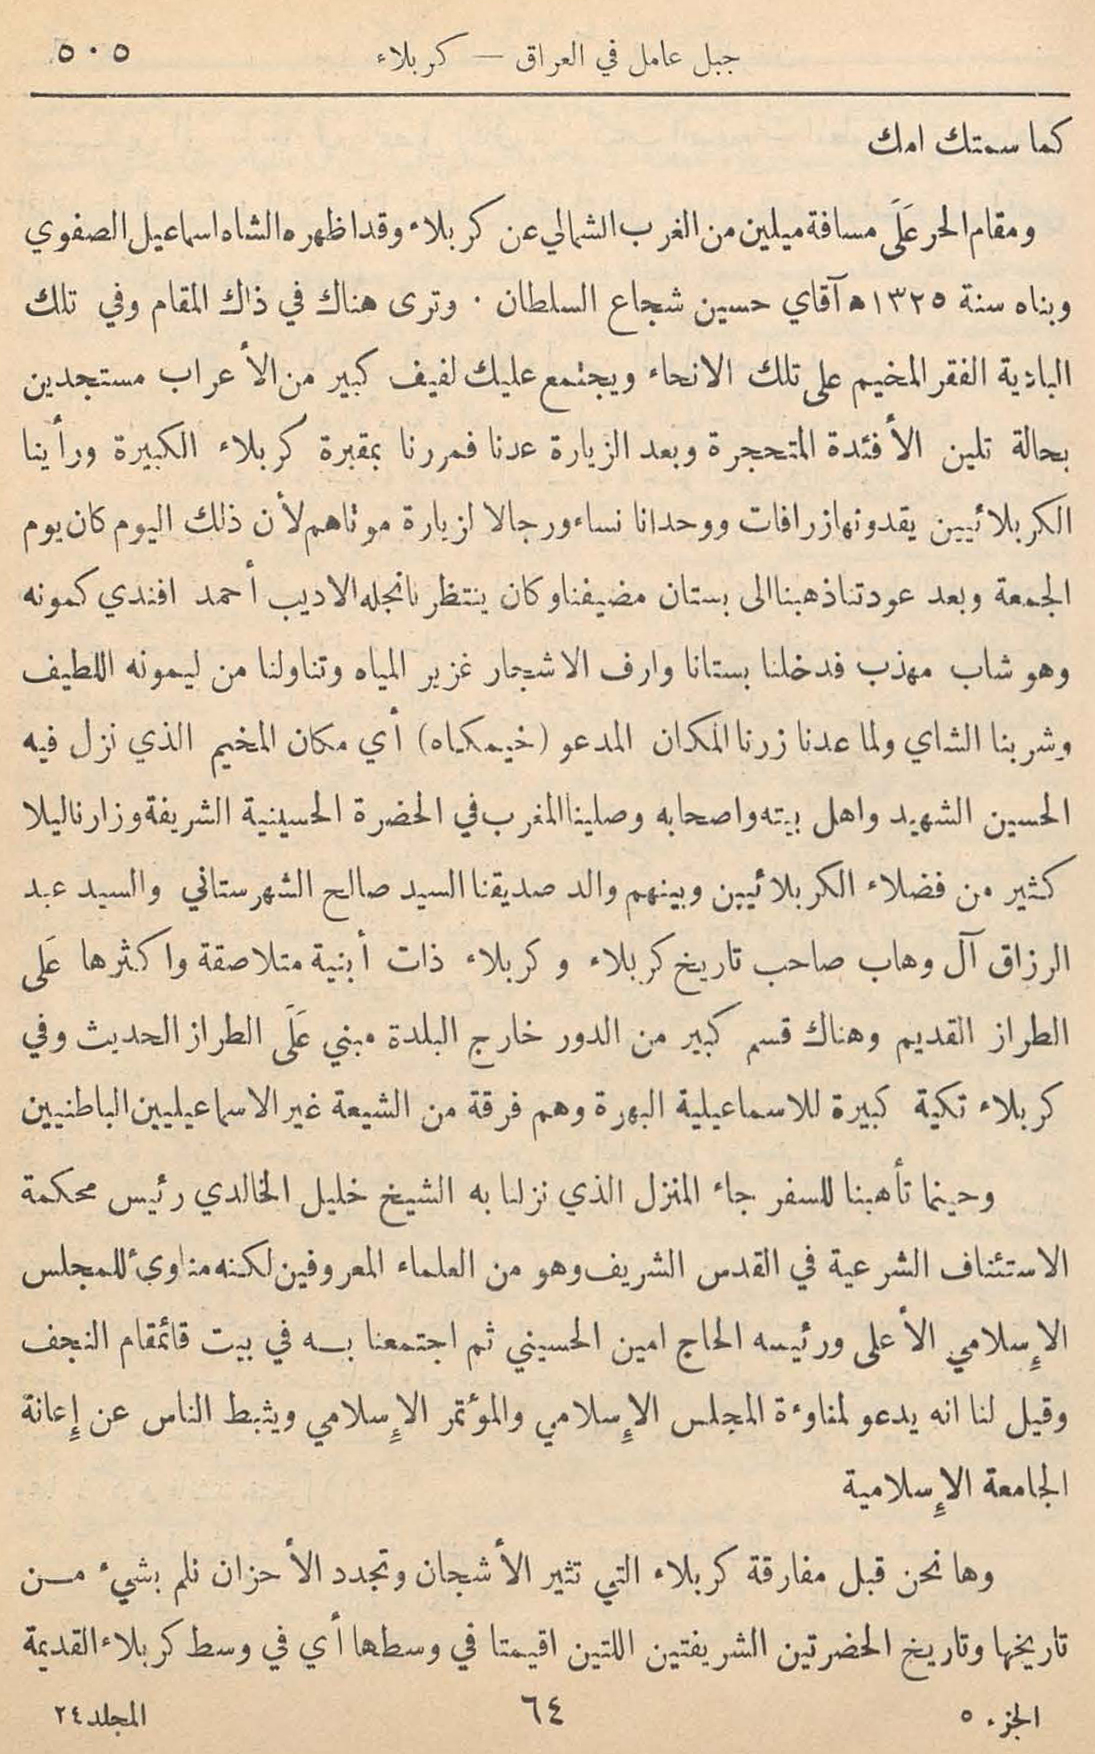 جبل عامل في العراق — كربلاء ٥٠٥
كما سمتك امك
ومقام الحر عَلَى مسافة ميلين من الغرب الشمالي عن كربلاء وقد اظهره الشاه اسماعيل الصفوي
وبناه سنة ١٣٢٥ ه آقاي حسين شجاع السلطان . وترى هناك في ذاك المقام وفي تلك
البادية الفقر المخيم على تلك الانحاء ويجتمع عليك لفيف كبير من الأعراب مستجدين
بحالة تلين الأفئدة المتحجرة وبعد الزيارة عدنا فمررنا بمقبرة كربلاء الكبيرة ورأينا
الكربلائيين يقدونها زرافات ووحدانا نساء ورجالا لزيارة موتاهم لأن ذلك اليوم كان يوم
الجمعة وبعد عودتنا ذهبنا الى بستان مضيفنا وكان ينتظرنا نجله الاديب أحمد افندي كمونه
وهو شاب مهذب فدخلنا بستانا وارف الاشجار غزير المياه وتناولنا من ليمونه اللطيف
وشربنا الشاي ولما عدنا زرنا المكان المدعو (خيمكاه) أي مكان المخيم الذي نزل فيه
الحسين الشهيد واهل بيته واصحابه وصلينا المغرب في الحضرة الحسينية الشريفة وزارنا ليلا
كثير من فضلاء الكربلائيين وبينهم والد صديقنا السيد صالح الشهرستاني والسيد عبد
الرزاق آل وهاب صاحب تاريخ كربلاء و كربلاء ذات أبنية متلاصقة واكثرها عَلَى
الطراز القديم وهناك قسم كبير من الدور خارج البلدة مبني عَلَى الطراز الحديث وفي
كربلاء تكية كبيرة للاسماعيلية البهرة وهم فرقة من الشيعة غير الاسماعيليين الباطنيين
وحينما تأهبنا للسفر جاء المنزل الذي نزلنا به الشيخ خليل الخالدي رئيس محكمة
الاستئناف الشرعية في القدس الشريف وهو من العلماء المعروفين لكنه مناوئ للمجلس
الإسلامي الأعلى ورئيسه الحاج امين الحسيني ثم اجتمعنا بـه في بيت قائمقام النجف
وقيل لنا انه يدعو لمناوءة المجلس الإسلامي والمؤتمر الإسلامي ويثبط الناس عن إعانة
الجامعة الإسلامية
وها نحن قبل مفارقة كربلاء التي تثير الأشجان وتجدد الأحزان نلم بشيء مـن
تاريخها وتاريخ الحضرتين الشريفتين اللتين اقيمتا في وسطها أي في وسط كربلاء القديمة
الجزء ٥ ٦٤ المجلد ٢٤